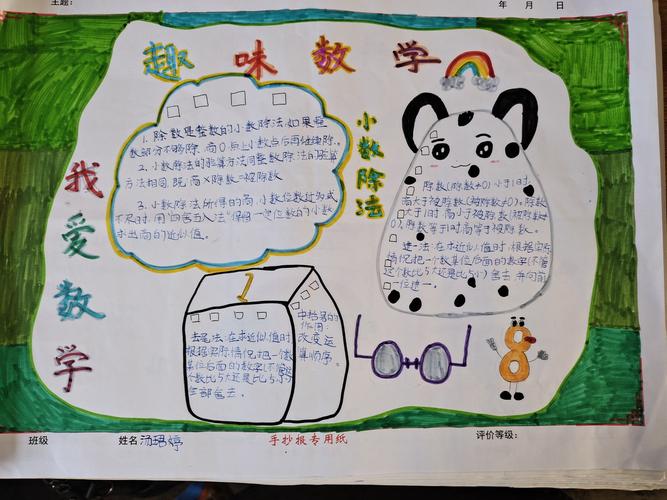 主题:
年 月 日
趣味数学
1. 除数是整数的小数除法:如果整
数部分不够除,商0,点上小数点后再继续除。
2. 小数除法的验算方法同整数除法的验算
方法相同,既商×除数=被除数
3. 小数除法所得的商,小数位数过多或
不尽时,用"四舍五入法"保留一定位数的小数
求出商的近似值。
小数除法
除数(除数≠0)小于1时,
商大于被除数(被除数≠0),除数
大于1时,商小于被除(被除数
≠0),除数等于1时商等于被除数。
进一法:在求近似值时,根据实际
情况把一个数某位后面的数字(不管
这个数比5大还是比5小)舍去,并向前
一位进一。
我爱数学
1
去尾法:在求近似值时
根据实际情况,把一个数
某位后面的数字(不管这
个数比5大还是比5小)
全部舍去。
中括号的
作用:
改变运
算顺序。
8
班级
姓名 汤珺婷
手抄报专用纸
评价等级: